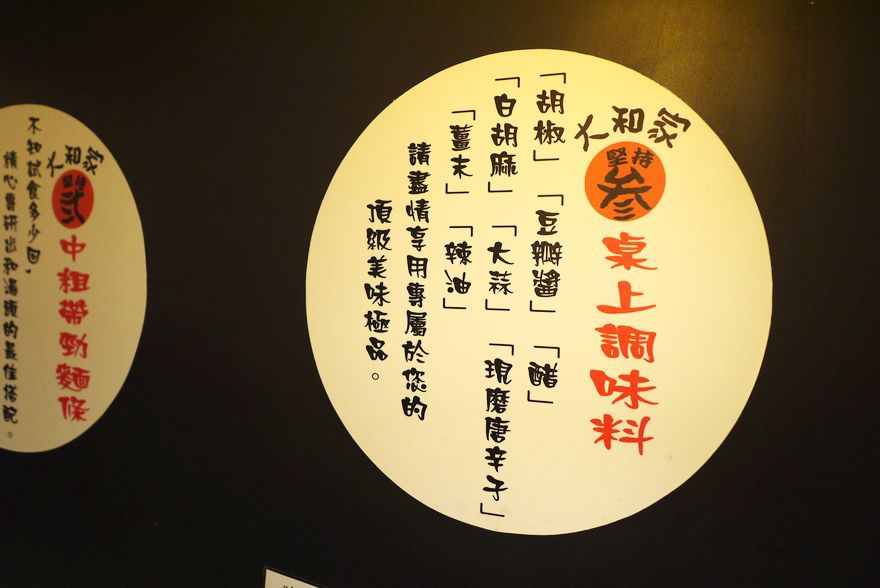 大和家
堅持
參
桌上調味料
「胡椒」「豆瓣醬」「醋」
「白胡麻」「大蒜」「現磨唐辛子」
「薑末」「辣油」
請盡情享用專屬於您的
頂級美味極品。
大和家
堅持
貳
中粗帶勁麵條
不知試食多少回，
精心專研出和湯頭的最佳搭配。